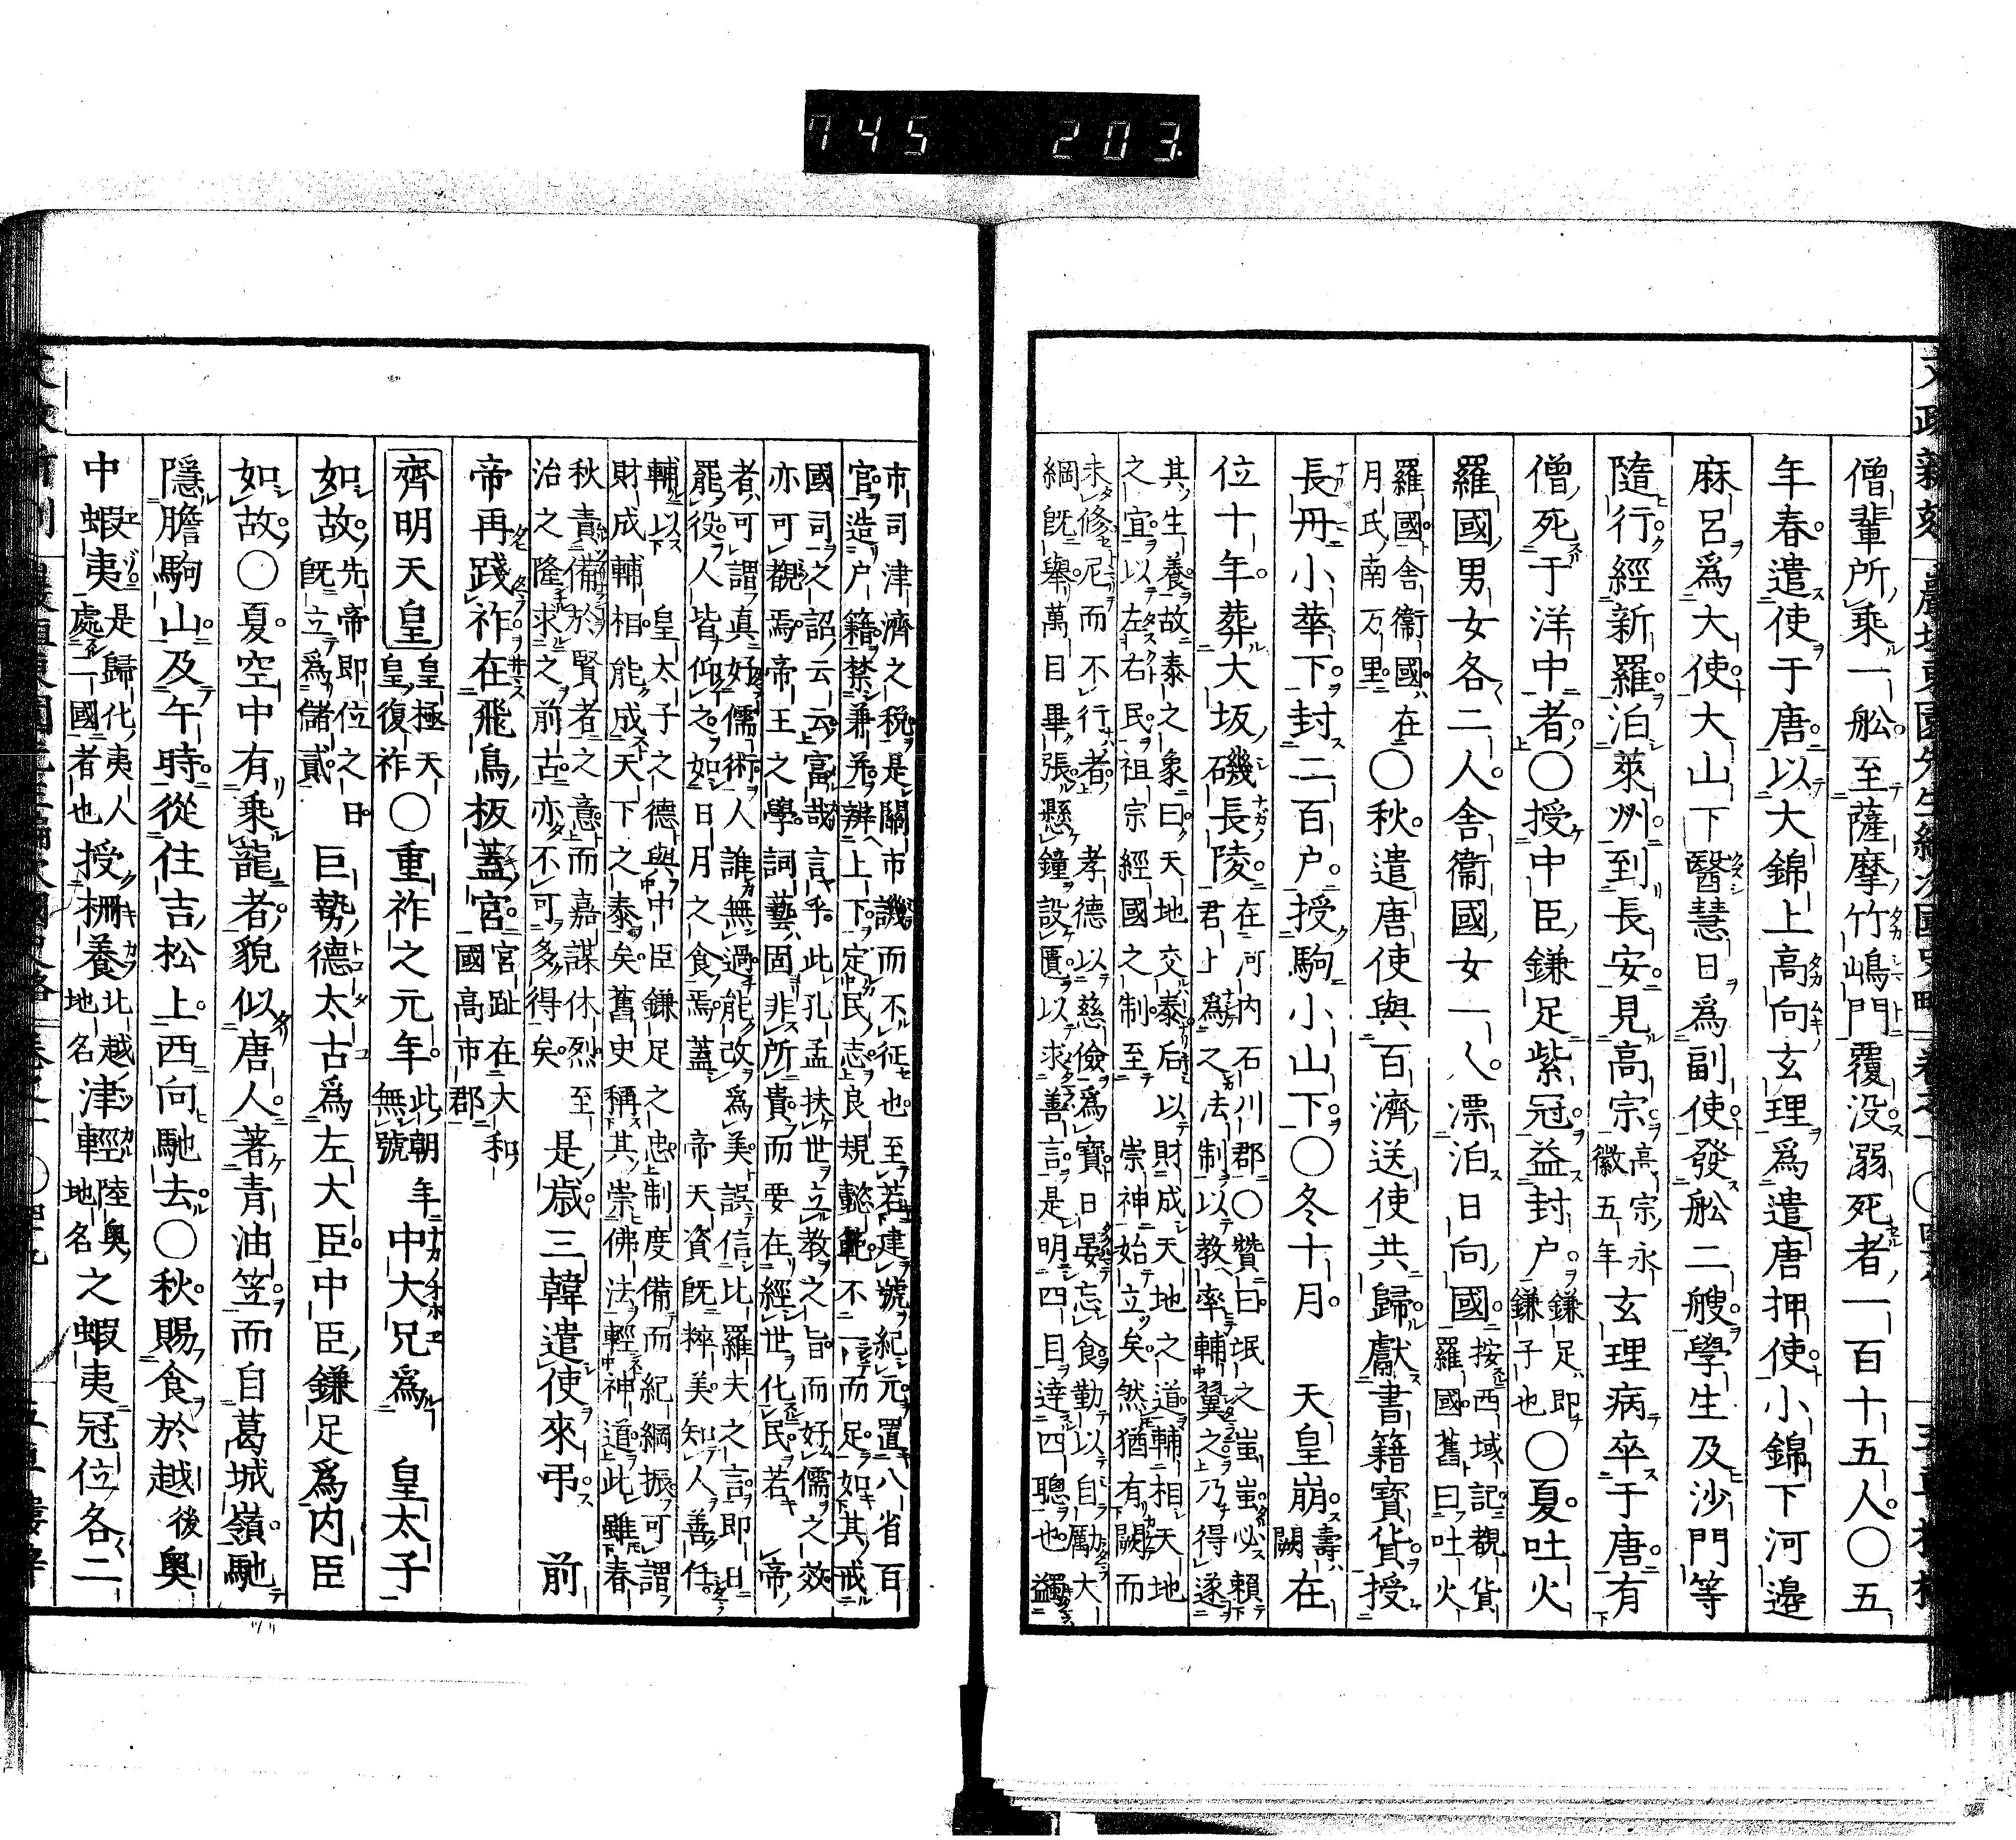 745 203.
僧輩所乘一舩至薩摩竹嶋門覆没溺死者一百十五人〇五
年春遣使于唐以大錦上高向玄理爲遣唐押使小錦下河邉
麻呂爲大使大山下醫慧日爲副使發舩二艘學生及沙門等
隨行經新羅泊萊州到長安見高宗高宗永徽五年玄理病卒于唐有
僧死于洋中者〇授中臣鎌足紫冠益封户鎌足即鎌子也〇夏吐火
羅國男女各二人舎衞國女一人漂泊日向國按西域記覩貨羅國舊曰吐火
羅國舎衞國在月氏南万里〇秋遣唐使與百濟送使共歸獻書籍寳貨授
長丹小華下封二百户授駒小山下〇冬十月天皇崩壽闕在
位十年葬大坂磯長陵在河内石川郡〇贊曰氓之蚩蚩必賴君上爲之法制以教率輔翼之乃得遂
其生養故泰之象曰天地交泰后以財成天地之道輔相天地之宜以左右民祖宗經國之制至崇神始立矣然猶有闕而
未修尼而不行者孝德以慈儉爲寳日晏忘食勤以自勵大綱旣舉萬目畢張懸鐘設匱以求善言是明四目達四聰也蠲
市司津濟之税是關市譏而不征也至若建號紀元置八省百官造户籍禁兼并辨上下定民志良規懿範不一而足如其戒
國司之詔云云富哉言乎此孔孟扶世立教之旨而好儒之效亦可觀焉帝王之學詞藝固非所貴而要在經世化民若帝
者可謂真好儒術人誰無過能改爲美誤信比羅夫之言即日罷役人皆仰之如日月之食焉蓋帝天資旣粹美知人善任
輔以皇太子之德與中臣鎌足之忠制度備而紀綱振可謂財成輔相能成天下之泰矣舊史稱其崇佛法輕神道此雖春
秋責備於賢者之意而嘉謀休烈至治之隆求之前古亦不可多得矣是歳三韓遣使來弔前
帝再踐祚在飛鳥板蓋宮宮趾在大和國高市郡
齊明天皇皇極天皇復祚〇重祚之元年此朝無年號中大兄爲皇太子
如故先帝即位之日旣立爲儲貳巨勢德太古爲左大臣中臣鎌足爲内臣
如故〇夏空中有乘龍者貌似唐人著青油笠而自葛城嶺馳
隱膽駒山及午時從住吉松上西向馳去〇秋賜食於越後奥
中蝦夷是歸化夷人處二國者也授柵養北越地名津輕陸奥地名之蝦夷冠位各二